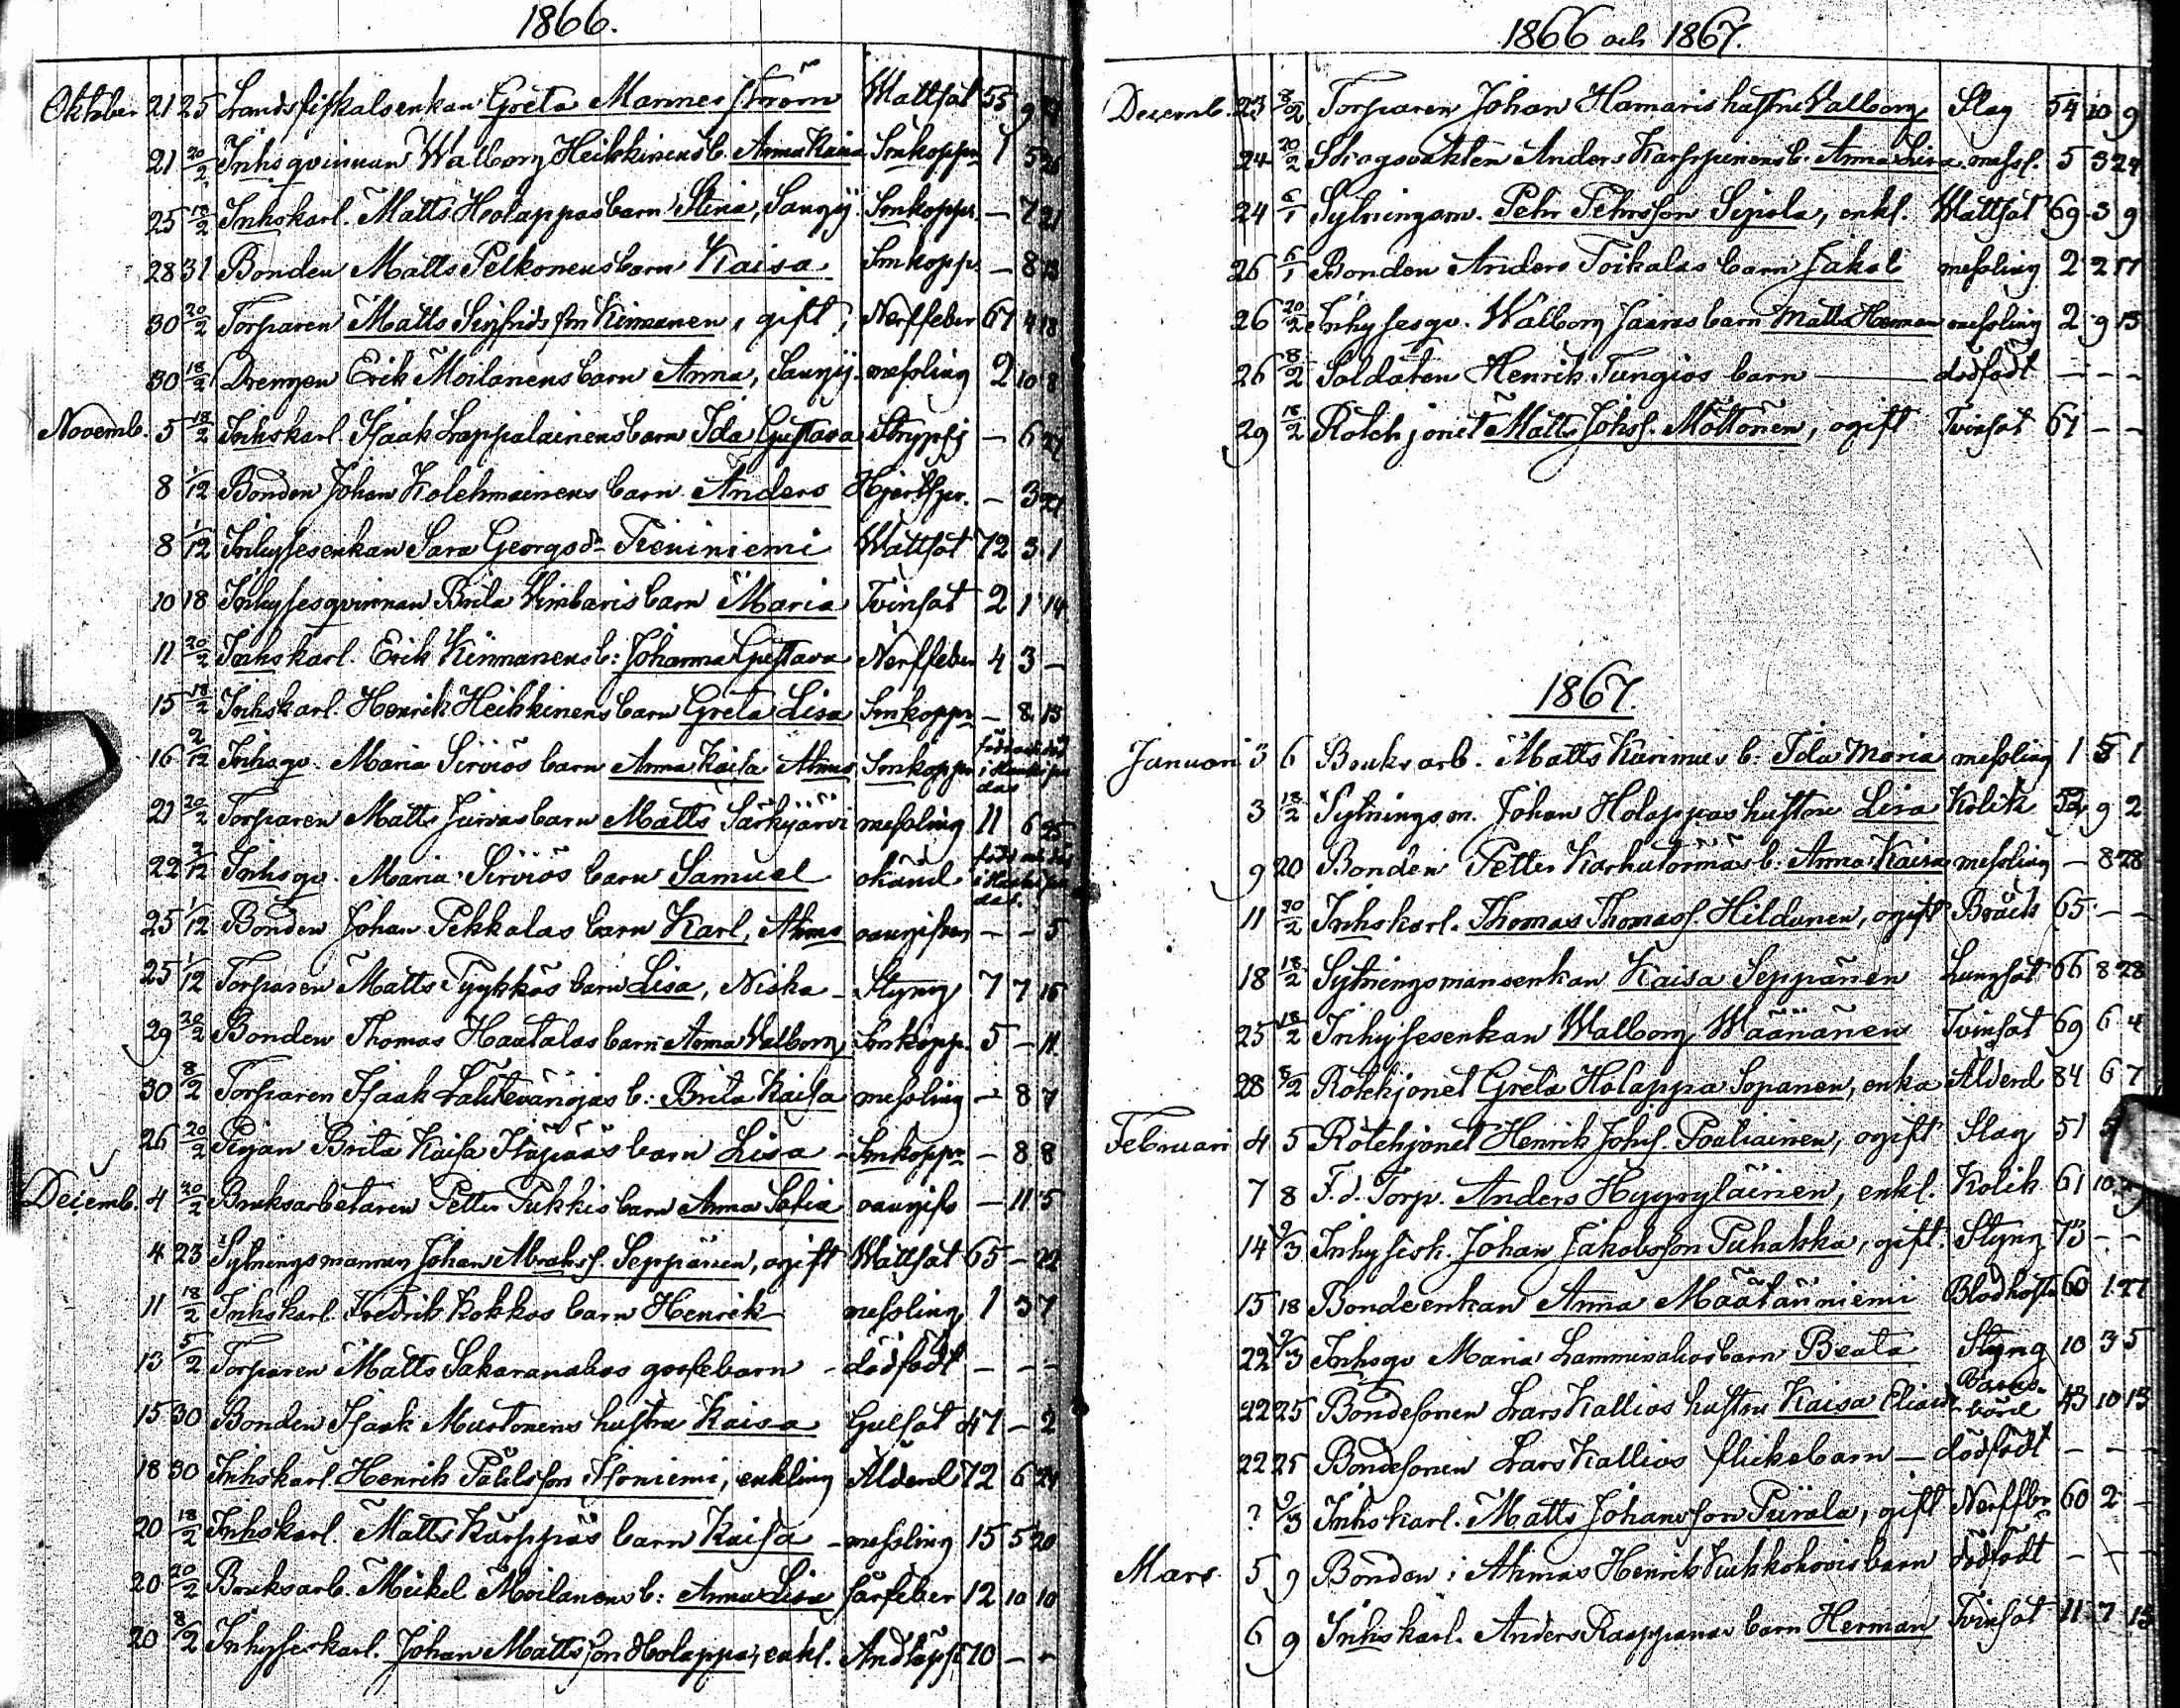 1866.
Oktober 21 25 Landsfiskalsenkan Greta Mannerström Wattsot 55 9
21 20/2 Inhsqvinnan Walborg Heikkinens b. Anna Kaisa Smkoppor 1 5 26
25 18/2 Inhskarl. Matts Holappas barn Stina, Smkoppr – 7 21
28 31 Bonden Matts Pelkonens barn Kaisa Smkopp – 8 13
30 20/2 Torparen Matts Sigfridsson Kinnunen, gift, Nerffeber 67 4 18
30 18/2 Drengen Erik Moilanens barn Anna, messling 2 10 8
Novemb. 5 18/2 Inhskarl. Isaak Lappalainens barn Ida Gustava Strypsj – 6 27
8 1/12 Bonden Johan Kolehmainens barn Anders Hjertspr. – 3 21
8 1/12 Inhysesenkan Sara Georgsdr Wattsot 72 3 1
10 18 Inhysesqvinnan Brita Kimbaris barn Maria Tvinsot 2 1 14
11 20/2 Inhskarl. Erik Kinnunens b: Johanna Gustava Nerffeber 4 3 –
15 18/2 Inhskarl. Henrik Heikkinens barn Greta Lisa Smkoppr – 8 13
16 2/12 Inhsqv. Maria Sirviös barn Anna Kaisa Ahmas Smkoppr född och död
21 20/2 Torparen Matts Juvas barn Matts Särkijärvi messling 11 6 25
22 2/12 Inhsqv. Maria Sirviös barn Samuel okänd född och död
25 1/12 Bonden Johan Pekkalas barn Karl, Ahmas oangifven – – 5
25 1/12 Torparen Matts Tyykkös barn Lisa, Niska – Styng 7 7 15
29 20/2 Bonden Thomas Haatalas barn Anna Walborg Smkopp. 5 – 11
30 8/2 Torparen Isaak Lahtevänojas b: Brita Kaisa messling – 8 7
26 20/2 Pigan Brita Kaisa barn Lisa – Smkoppr – 8 8
Decemb. 4 20/2 Bruksarbetaren Petter Pukkis barn Anna Sofia oangifv – 11 5
4 23 Sytningsmannen Johan Abrahsf. Seppänen, ogift Wattsot 65 – 22
11 18/2 Inhskarl. Fredrik Kokkos barn Henrik messling 1 3 7
13 5/2 Torparen Matts Sakaranahos gossebarn – dödfödt – – –
15 30 Bonden Isaak Mustonens hustru Kaisa Gulsot 47 – 2
18 30 Inhskarl. Henrik Påhlsson Isoniemi, enkling Ålderd 72 6 24
20 18/2 Inhskarl. Matts Karppas barn Kaisa – messling 15 5 20
20 20/2 Bruksarb. Mikel Moilanens b: Anna Lisa farfeber 12 10 10
20 8/2 Inhyseskarl. Johan Mattsson Holappa, enkl. Andtäppa 70 – –
1866 och 1867.
Decemb. 23 8/2 Torparen Johan Hamaris hustru Valborg Slag 54 10 9
24 20/2 Skogsvakten Anders Karppinens b. Anna Lisa messl. 5 3 24
24 6/1 Sytningsm. Pehr Pehrsson Sipola, enkl. Wattsot 69 3 9
26 6/1 Bonden Anders Toikalas barn Jakob messling 2 2 17
26 20/2 Inhysesqv. Walborg Jaaras barn Matts Herman messling 2 9 13
26 8/2 Soldaten Henrik Tungios barn – dödfödt – – –
29 18/2 Rotehjonet Matts Johsf. Möttönen, ogift Tvinsot 61 – –
1867.
Januari 3 6 Bruksarb. Matts b: Ida Maria messling 1 5 1
3 18/2 Sytningsm. Johan Holappas hustru Lisa Kolik 52 9 2
9 20 Bonden Petter Karhutörmäs b: Anna Kaisa messling – 8 28
11 20/2 Inhskarl. Thomas Thomasf. Hildunen, ogift Bråck 65 – –
18 18/2 Sytningsmansenkan Kaisa Seppänen Lungsot 66 8 28
25 18/2 Inhysesenkan Walborg Wäänänen Tvinsot 69 6 4
28 8/2 Rotehjonet Greta Holappa Sopanen, enka Ålderd 84 6 7
Februari 4 5 Rotehjonet Henrik Johsf. Pooliainen, ogift Slag 51 5
7 8 F.d. Torp. Anders Hyyryläinen, enkl. Kolik 61 10
14 9/3 Inhysesk. Johan Jakobsson Puhakka, gift. Styng 73 – –
15 18 Bondeenkan Anna Määtänniemi Blodhosta 60 1 27
22 9/3 Inhsqv Maria Lamminahos barn Beata Styng 10 3 5
22 25 Bondesonen Lars Kallios hustru Kaisa Eliasdr Barnsbörd 43 10 13
22 25 Bondesonen Lars Kallios flickebarn – dödfödt – – –
? 9/3 Inhskarl. Matts Johansson Purala, gift Nerffbr 60 2 –
Mars. 5 9 Bonden i Ahmas Henrik Kukkohovis barn dödfödt – – –
6 9 Inhskarl. Anders Raappanas barn Herman Tvinsot 11 7 15